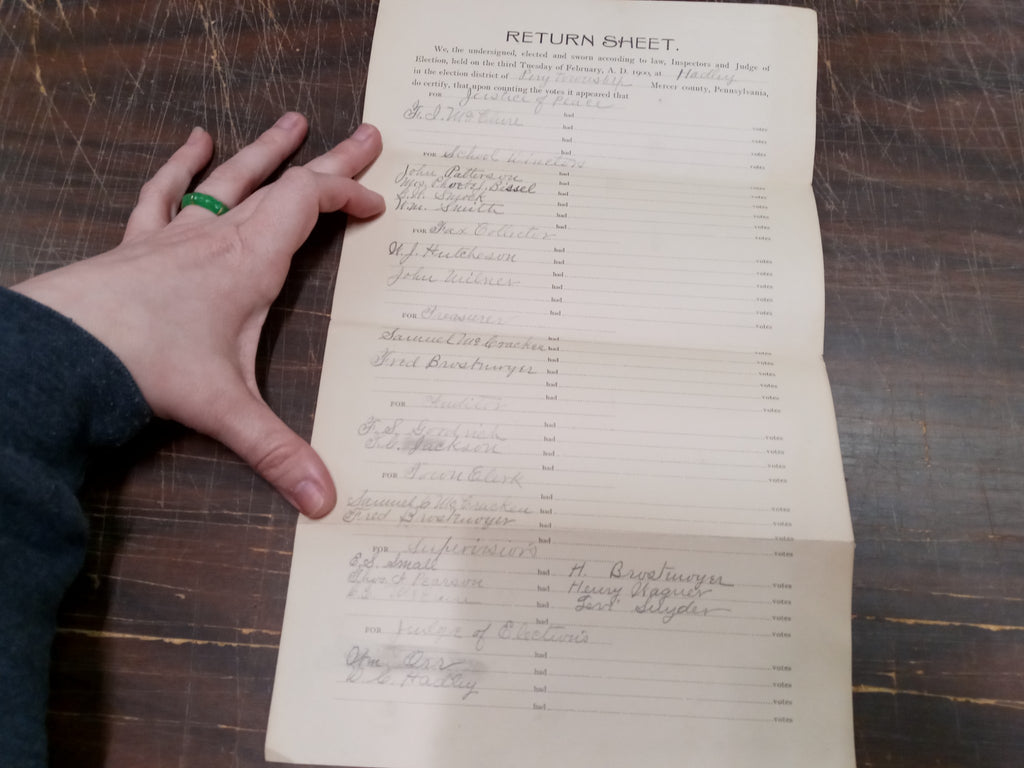 RETURN SHEET.
We, the undersigned, elected and sworn according to law, Inspectors and Judge of
Election, held on the third Tuesday of February, A. D. 1900, at Hadley
in the election district of Perry township Mercer county, Pennsylvania,
do certify, that upon counting the votes it appeared that
FOR Justice of Peace
had votes
F. I. McClure had votes
had votes
had votes
FOR School Directors
had votes
John Patterson had votes
Mrs. Bissel had votes
Smock had votes
Wm. Smith had votes
FOR Tax Collector
had votes
Hutcheson had votes
had votes
John Milner had votes
had votes
FOR Treasurer
had votes
Samuel McCracken had votes
had votes
Fred Brostmoyer had votes
had votes
FOR Auditor
had votes
F. S. Goodrich had votes
Jackson had votes
FOR Town Clerk
had votes
Samuel C McCracken had votes
Fred Brostmoyer had votes
FOR Supervisiors
E. S. Small had H. Brostmoyer votes
Pearson had Henry Wagner votes
McClure had Levi Snyder votes
had votes
FOR Judge of Elections
had votes
Wm. Orr had votes
Hadley had votes
had votes